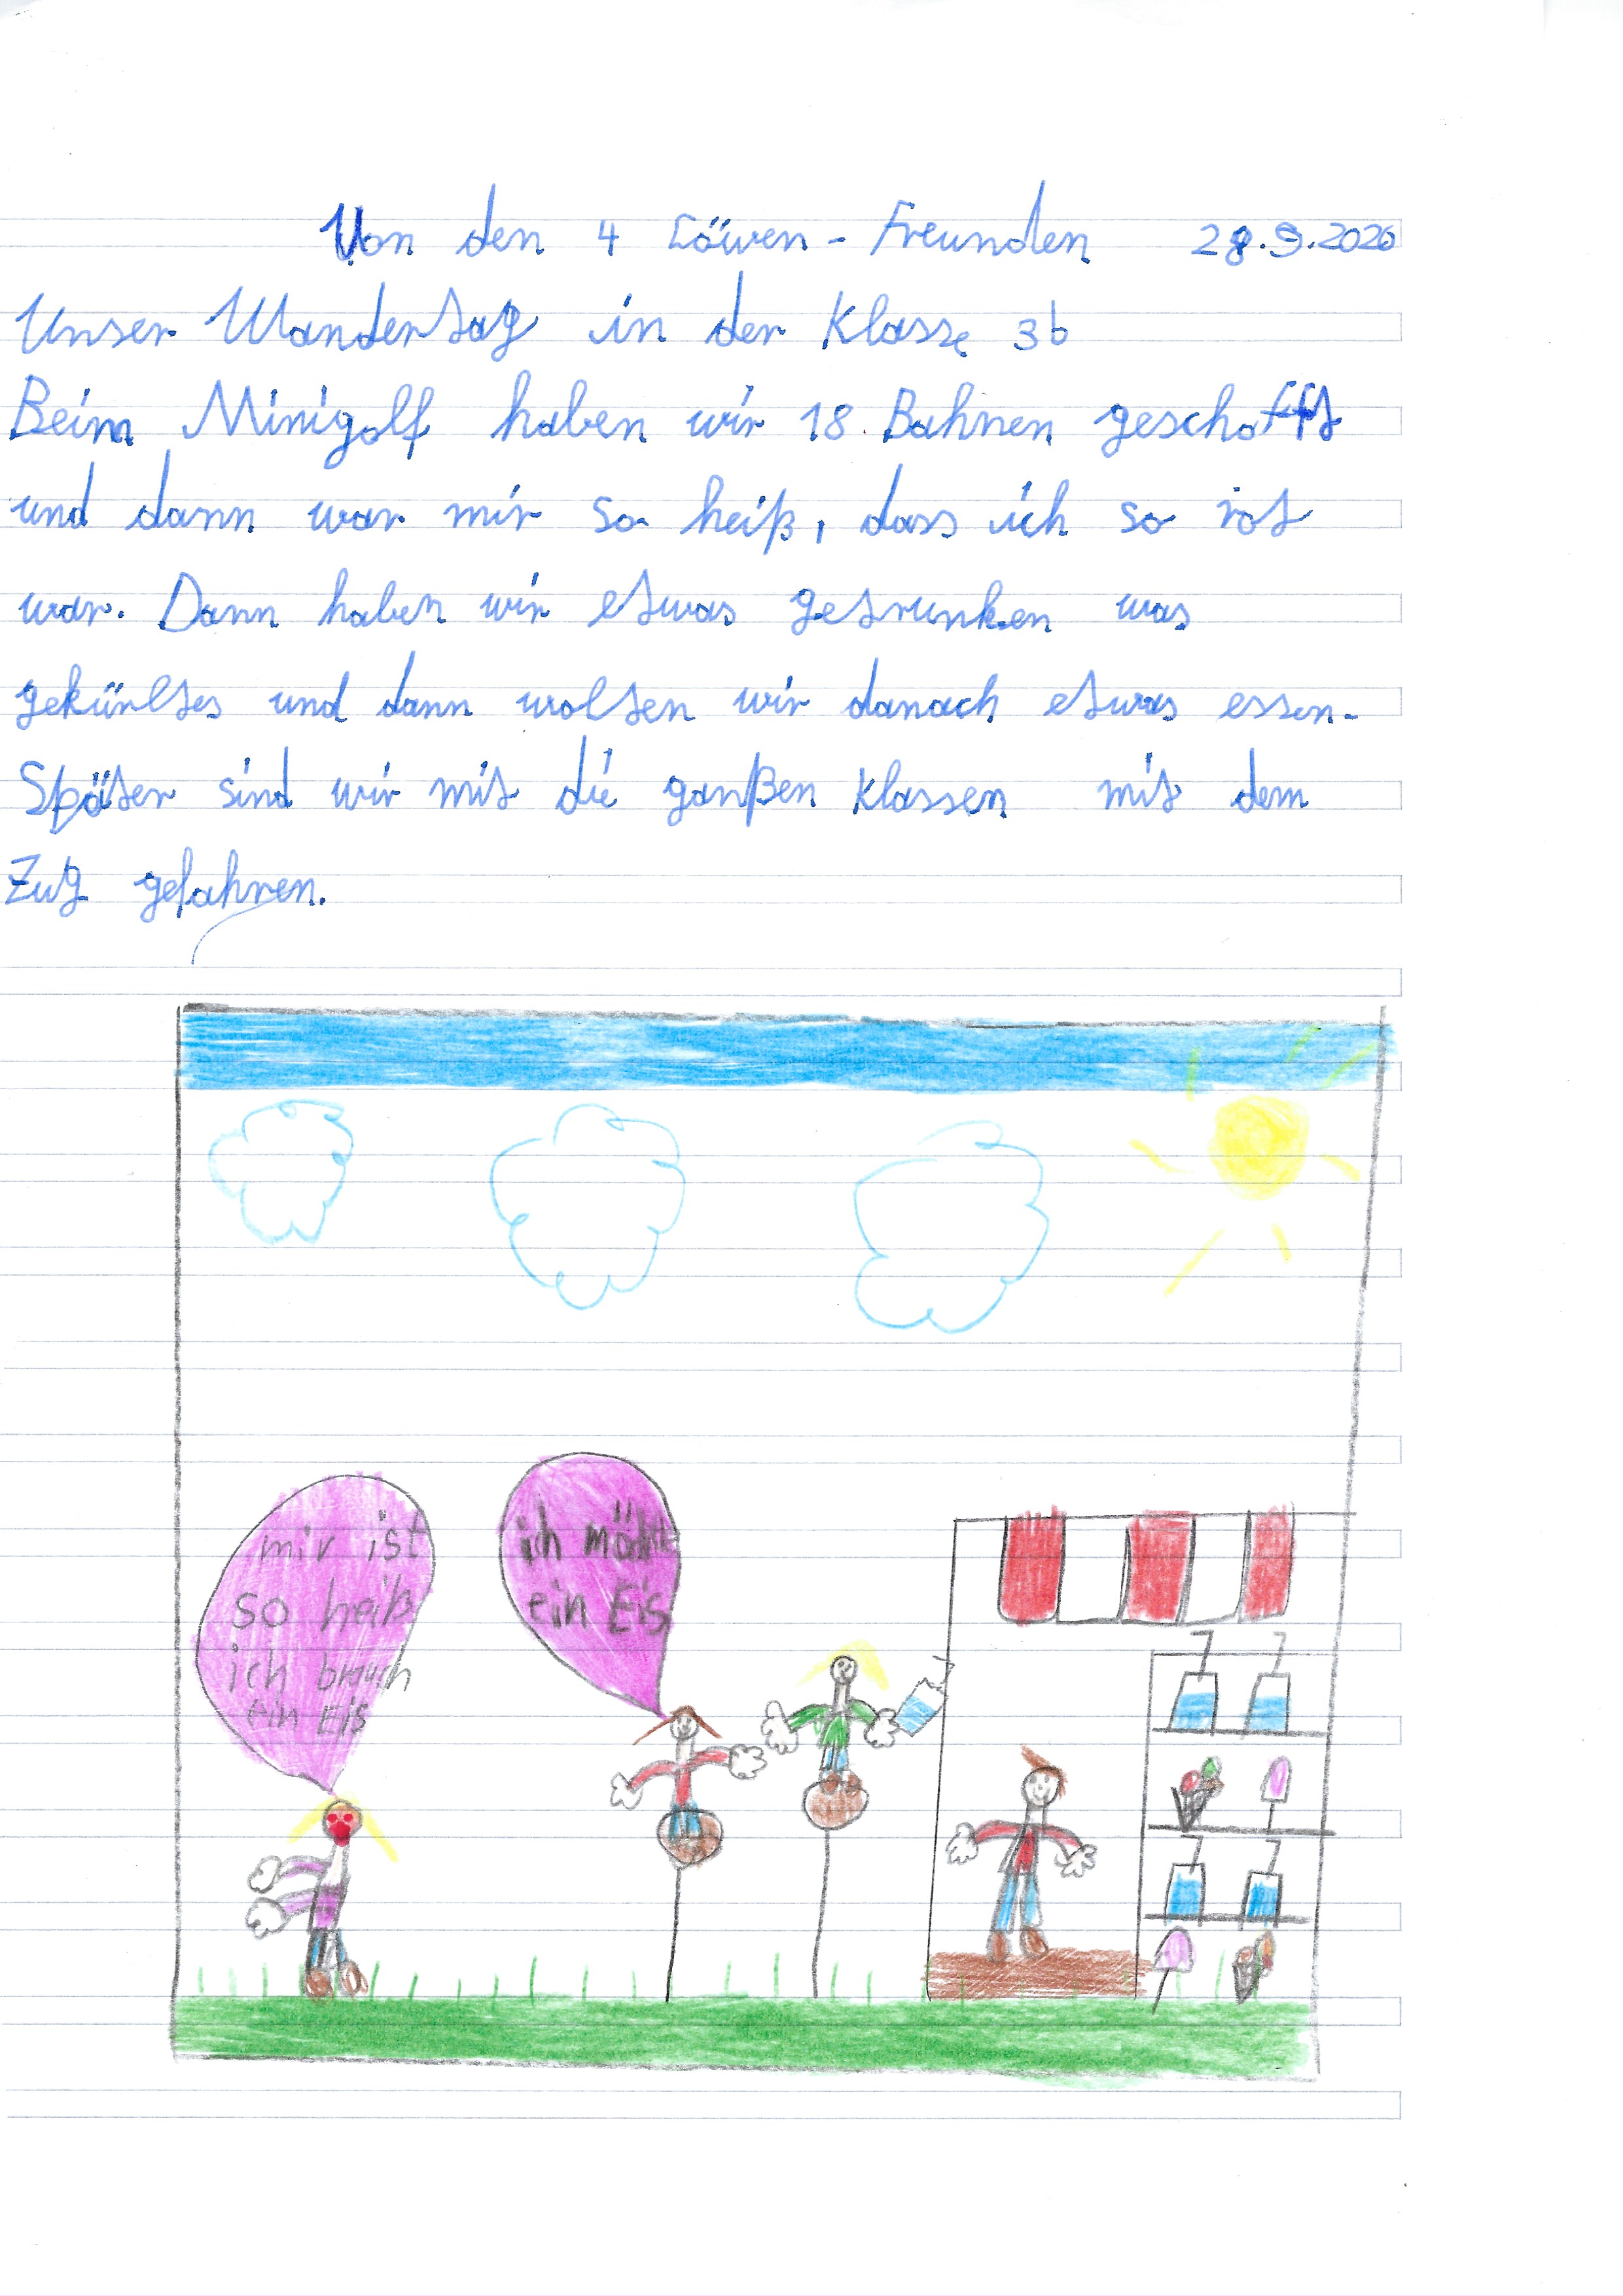 Von den 4 Löwen - Freunden 28.9.2020
Unser Wandertag in der Klasse 3b
Beim Minigolf haben wir 18 Bahnen geschafft
und dann war mir so heiß, dass ich so rot
war. Dann haben wir etwas getrunken was
gekürltes und dann wolten wir danach etwas essen.
Später sind wir mit die ganßen Klassen mit dem
Zug gefahren.
mir ist
so heiß
ich brauch
ein Eis
ich möchte
ein Eis